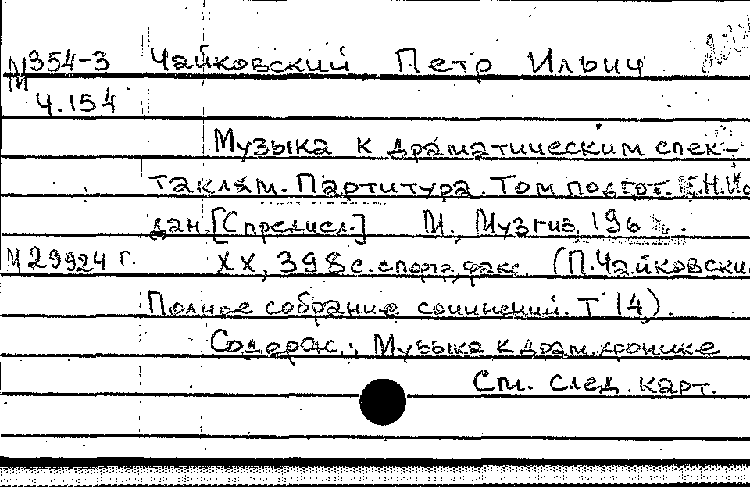 М354-3 Чайковский Петр Ильич
Ч.154
Музыка к драматическим спек-
таклям. Партитура. Том подгот.
дан. [С предисл.] М., Музгиз, 196
М29924 г. XX, 398 с. с портр., факс. (П. Чайковский
Полное собрание сочинений. Т 14).
Содерж.: Музыка к драм. хронике
См. след. карт.